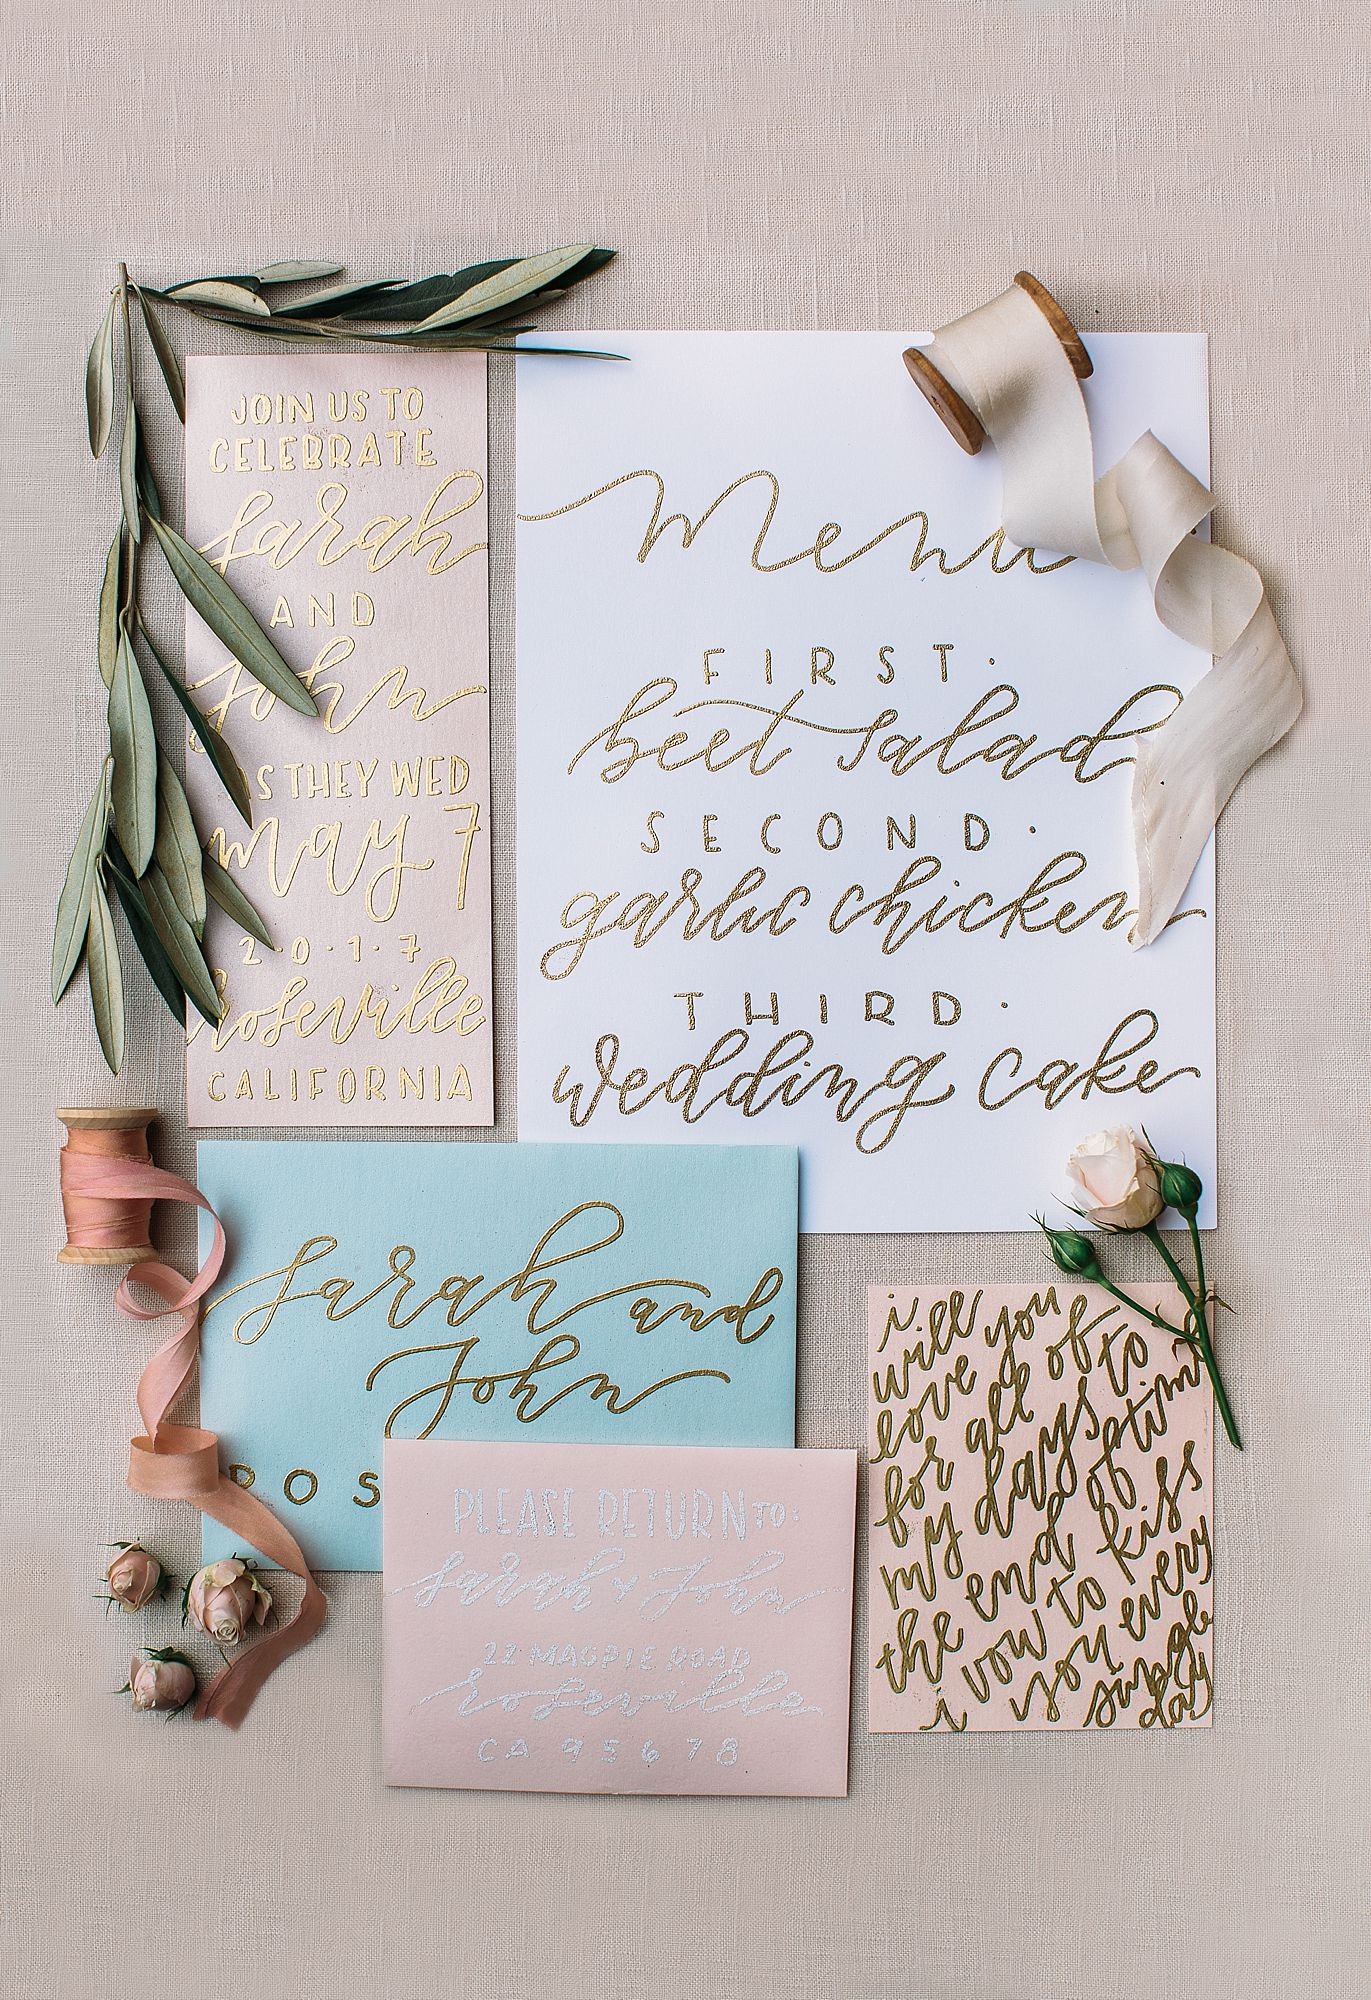 JOIN US TO
CELEBRATE
Sarah
AND
John
AS THEY WED
may 7
2·0·1·7
Roseville
CALIFORNIA
Menu
FIRST.
beet salad
SECOND.
garlic chicken
THIRD.
wedding cake
Sarah and
John
ROS
PLEASE RETURN TO:
Sarah & John
22 MAGPIE ROAD
roseville
CA 95678
i will you
love all of
for days to
my end of time
the vow to kiss
i you every
single
day